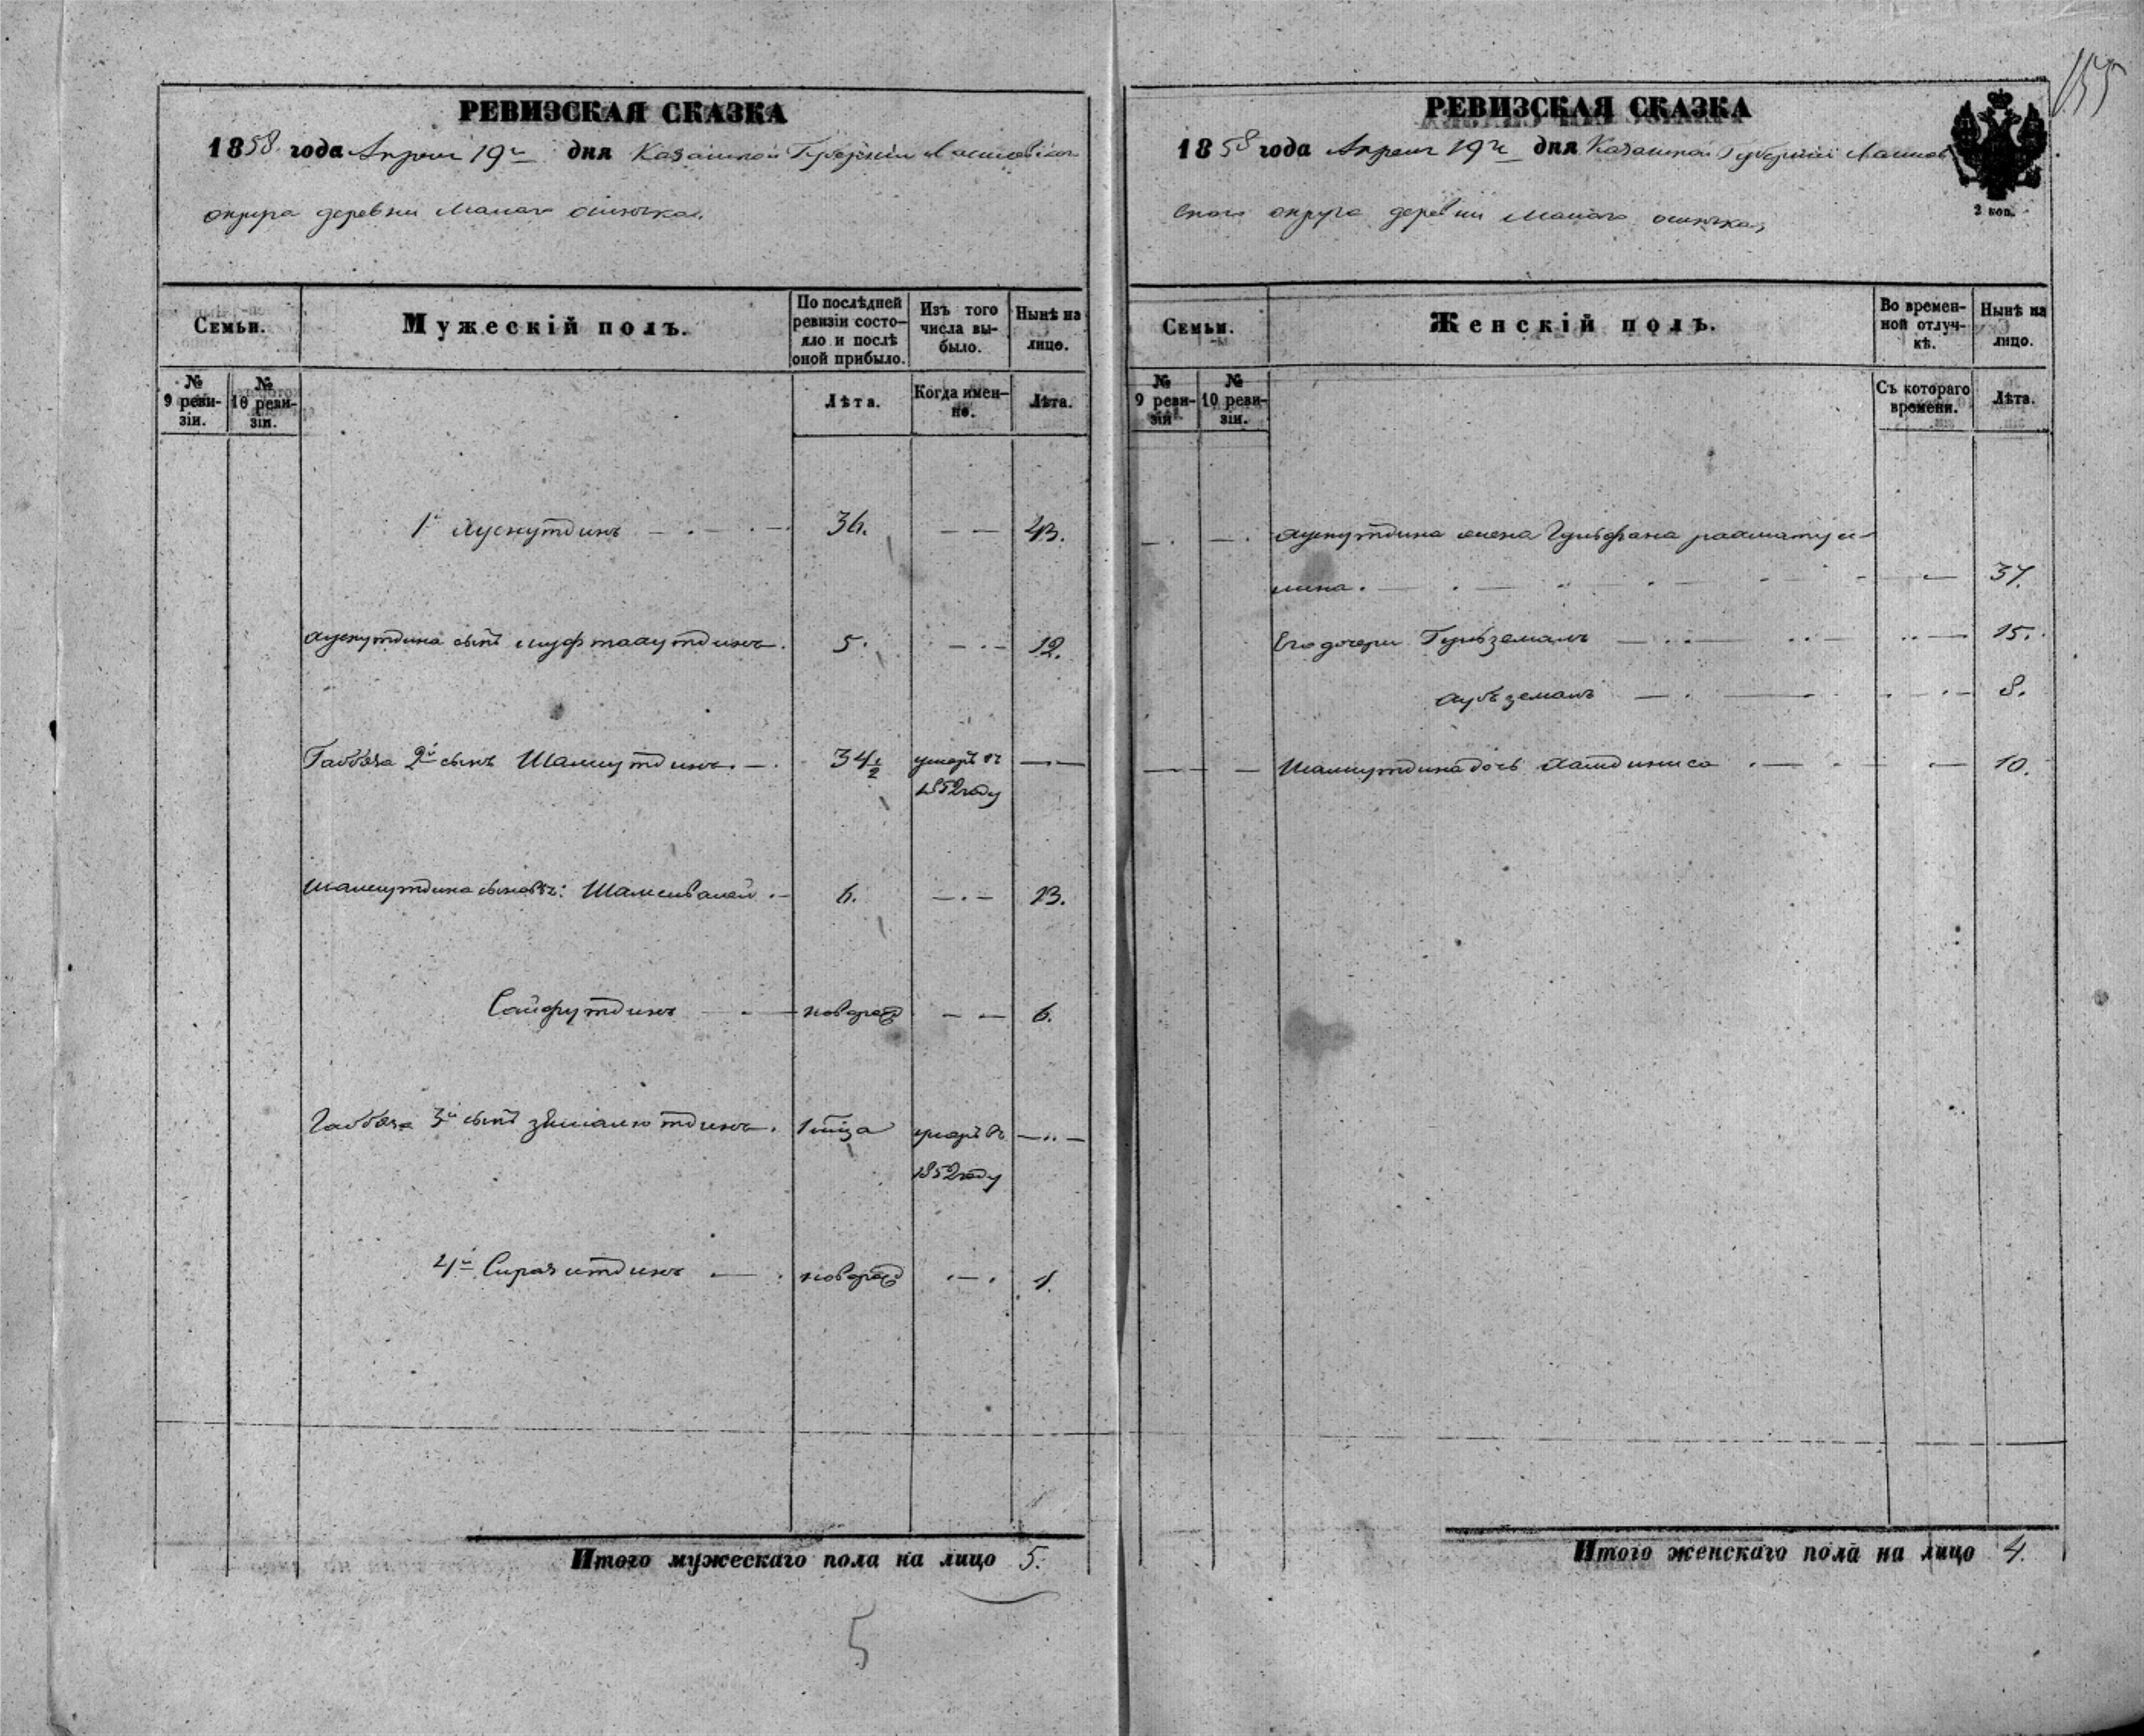 155
РЕВИЗСКАЯ СКАЗКА
1858 года Апреля 19 дня Казанской Губернии Лаишевскаго
округа деревни Малаго
Семьи.
Мужескій полъ.
По послѣдней ревизіи состояло и послѣ оной прибыло.
Изъ того числа выбыло.
Нынѣ на лицо.
№ 9 ревизіи.
№ 10 ревизіи.
Лѣта.
Когда именно.
Лѣта.
1й Хуснутдинъ 36. 43.
Хуснутдина сынъ 5. 12.
2й сынъ Шамсутдинъ 34½ умеръ въ 1852 году
Шамсутдина сыновья: Шамсивалей 6. 13.
Сайфутдинъ новорожд 6.
3й сынъ 1 умеръ въ 1852 году
4й Сиразитдинъ новорожд 1.
Итого мужескаго пола на лицо 5.
5
РЕВИЗСКАЯ СКАЗКА
1858 года Апреля 19 дня Казанской Губернии Лаишев
скаго округа деревни Малаго
2 коп.
Семьи.
Женскій полъ.
Во временной отлучкѣ.
Нынѣ на лицо.
№ 9 ревизіи
№ 10 ревизіи.
Съ котораго времени.
Лѣта.
Хуснутдина жена
37.
Его дочери Гульземалъ 15.
8.
Шамсутдина дочь 10.
Итого женскаго пола на лицо 4.